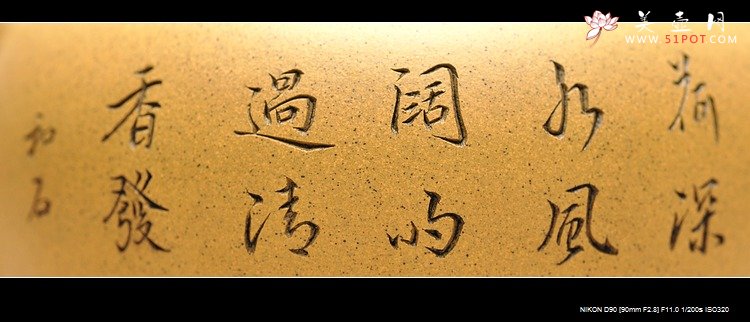 美壶网
WWW.51POT.COM
荷深
水風
阔雨
過清
香發
初石
NIKON D90 [90mm F2.8] F11.0 1/200s ISO320